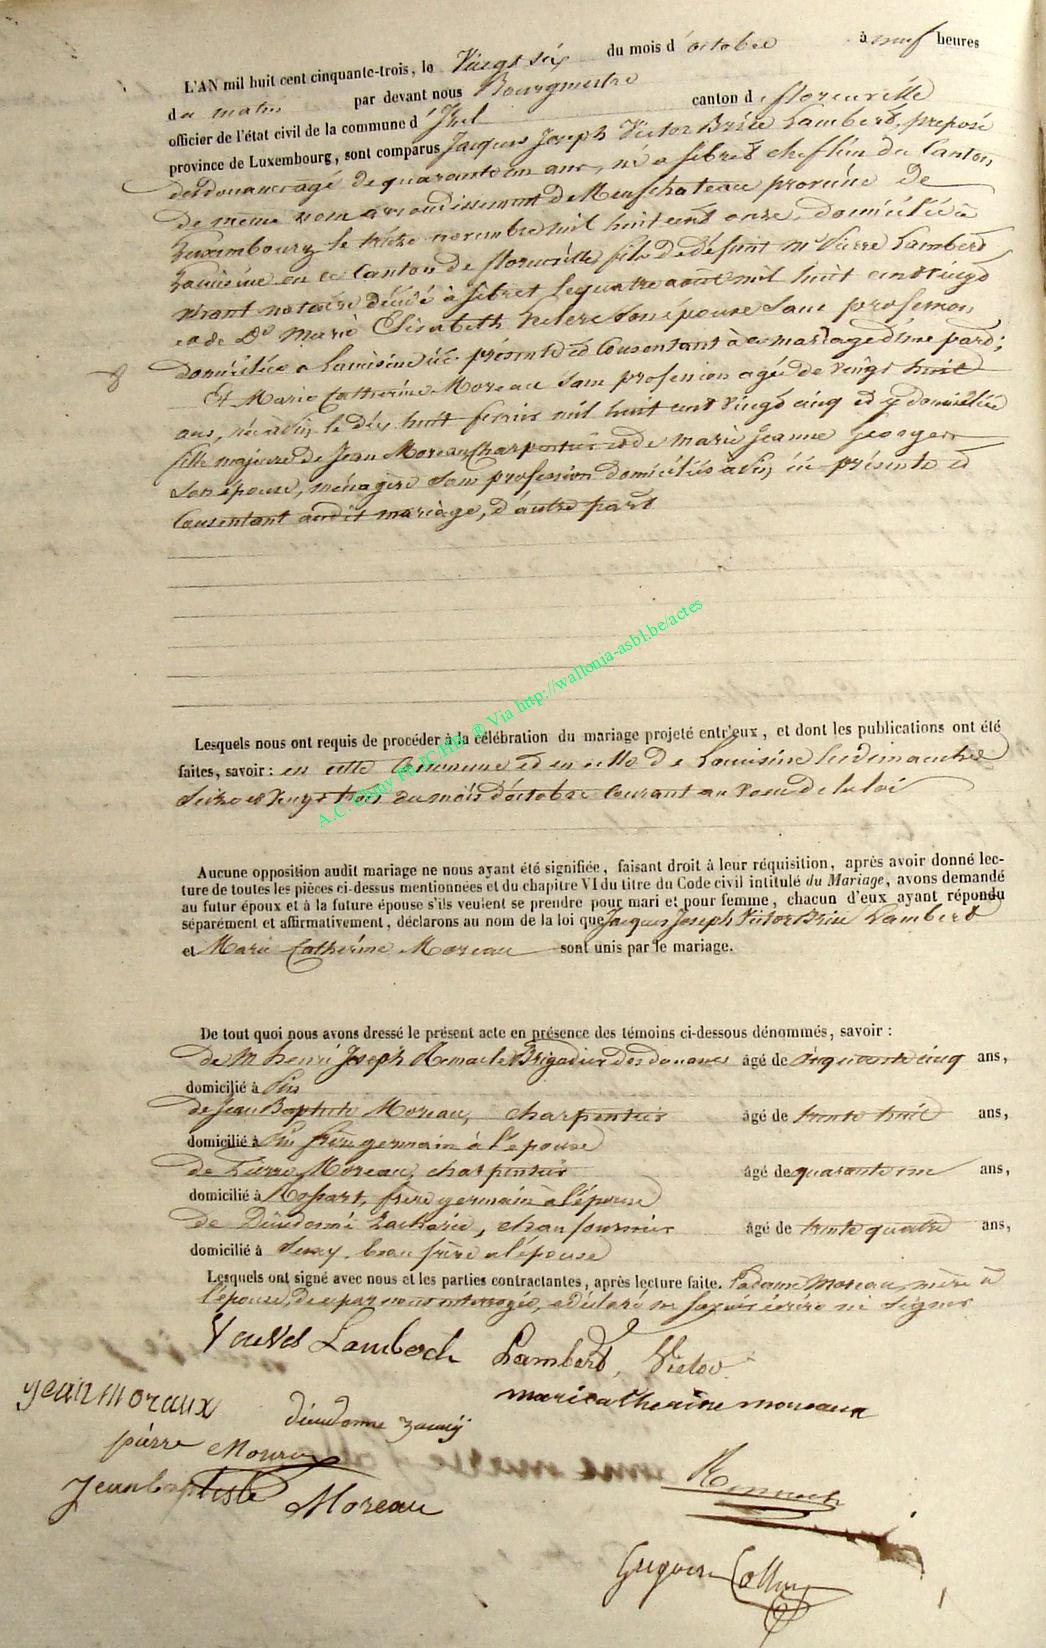 L'AN mil huit cent cinquante-trois, le Vingt six du mois d'octobre à neuf heures
du matin par devant nous Bourgmestre
officier de l'état civil de la commune d'Izel canton de florenville
province de Luxembourg, sont comparus Jacques Joseph Victor Lambert, préposé
des douanes agé de quarante un ans, né a sibret chef lieu du Canton
de même nom arrondissement de Neufchateau province de
Luxembourg le treize novembre mil huit cent onze, domicilié à
Lacuisine en ce Canton de florenville fils de défunt Mr Pierre Lambert
vivant notaire décédé à sibret le quatre août mil huit cent vingt
et de De Marie Elisabeth son épouse sans profession
domiciliée a Lacuisine ici présente et Consentant à ce mariage d'une part;
Et Marie Catherine Moreau sans profession agée de vingt huit
ans, née à Pin le dix huit mil huit cent vingt cinq et y domiciliée
fille majeure de Jean Moreau Charpentier et de marie Jeanne
son épouse, ménagère sans profession domiciliés a Pin, ici présents et
Consentant audit mariage, d'autre part
Lesquels nous ont requis de procéder à la célébration du mariage projeté entr'eux, et dont les publications ont été
faites, savoir: en cette Commune et en celle de Lacuisine les dimanches
Seize et Vingt trois du mois d'octobre Courant au Voeu de la loi
A.C. Chiny Ph.JC/HB ® Via http://wallonia-asbl.be/actes
Aucune opposition audit mariage ne nous ayant été signifiée, faisant droit à leur réquisition, après avoir donné lec-
ture de toutes les pièces ci-dessus mentionnées et du chapitre VI du titre du Code civil intitulé du Mariage, avons demandé
au futur époux et à la future épouse s'ils veulent se prendre pour mari et pour femme, chacun d'eux ayant répondu
séparément et affirmativement, déclarons au nom de la loi que Jacques Joseph Victor Lambert
et Marie Catherine Moreau sont unis par le mariage.
De tout quoi nous avons dressé le présent acte en présence des témoins ci-dessous dénommés, savoir:
de M henri Joseph Remacle Brigadier des douanes âgé de cinquante cinq ans,
domicilié à Pin
de Jean Baptiste Moreau, charpentier âgé de trente huit ans,
domicilié à Pin frère germain à l'épouse
de Pierre Moreau, charpentier âgé de quarante un ans,
domicilié à Rossart, frère germain à l'épouse
de Dieudonné Zacharie, chaufournier âgé de trente quatre ans,
domicilié à Jamoigne, beau frère a l'épouse
Lesquels ont signé avec nous et les parties contractantes, après lecture faite. La dame Moreau, mère à
l'épouse, de ce par nous interrogée, a déclaré ne savoir écrire ni signer
Lambert Lambert, Victor
Jean Moraux marie catherine moreaux
dieudonne
pierre
Jean baptiste Moreau Remacle